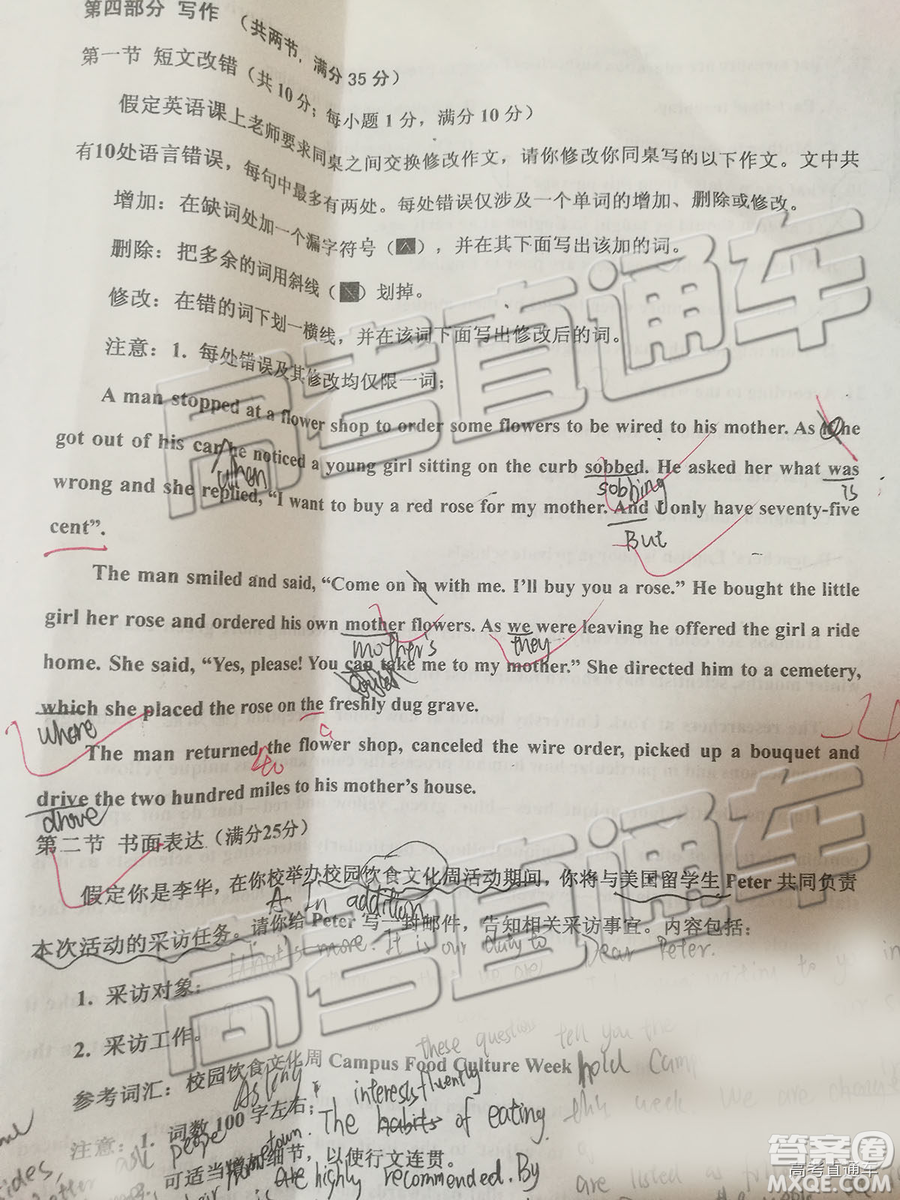 第四部分 写作 (共两节,满分35分)
第一节 短文改错(共10分;每小题1分,满分10分)
假定英语课上老师要求同桌之间交换修改作文,请你修改你同桌写的以下作文。文中共
有10处语言错误,每句中最多有两处。每处错误仅涉及一个单词的增加、删除或修改。
增加:在缺词处加一个漏字符号(∧),并在其下面写出该加的词。
删除:把多余的词用斜线(\)划掉。
修改:在错的词下划一横线,并在该词下面写出修改后的词。
注意:1. 每处错误及其修改均仅限一词;
A man stopped at a flower shop to order some flowers to be wired to his mother. As he
got out of his car he noticed a young girl sitting on the curb sobbed. He asked her what was
when sobbing is
wrong and she replied, “I want to buy a red rose for my mother. And I only have seventy-five
But
cent”.
The man smiled and said, “Come on in with me. I’ll buy you a rose.” He bought the little
girl her rose and ordered his own mother flowers. As we were leaving he offered the girl a ride
mother's they
home. She said, “Yes, please! You can take me to my mother.” She directed him to a cemetery,
which she placed the rose on the freshly dug grave.
where a
The man returned the flower shop, canceled the wire order, picked up a bouquet and
to
drive the two hundred miles to his mother’s house.
drove
第二节 书面表达(满分25分)
假定你是李华,在你校举办校园饮食文化周活动期间,你将与美国留学生 Peter 共同负责
A. In addition
本次活动的采访任务。请你给 Peter 写一封邮件,告知相关采访事宜。内容包括:
What's more. It is our duty to Dear Peter.
1. 采访对象;
2. 采访工作。
These question tell you the
参考词汇:校园饮食文化周 Campus Food Culture Week hold
As long interests fluently
注意:1. 词数100字左右;
The habits of eating this week We are
people
可适当增加细节,以使行文连贯。
town. Are highly recommended. By
高考直通车
高考直通车
答案圈
MXQE.COM
高考直通车